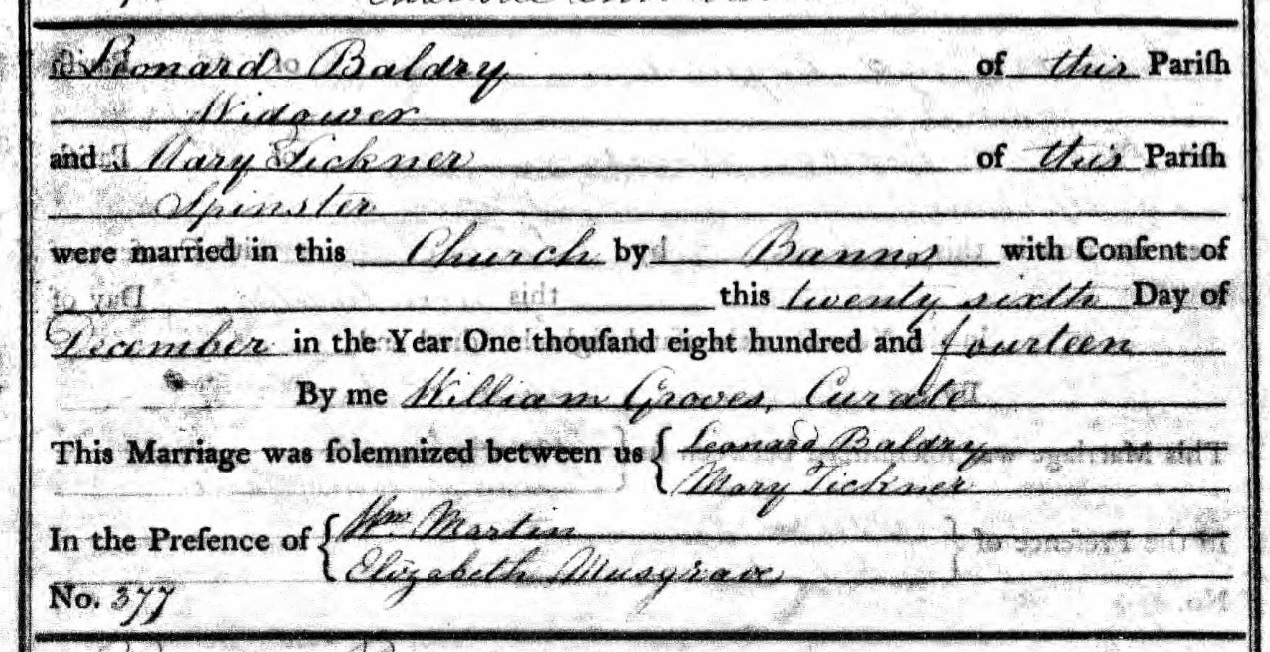 Leonard Baldry of this Pariſh
Widower
and Mary Tickner of this Pariſh
Spinster
were married in this Church by Banns with Conſent of
this twenty sixth Day of
December in the Year One thouſand eight hundred and fourteen
By me William Groves, Curate
This Marriage was ſolemnized between us { Leonard Baldry
Mary Tickner
In the Preſence of { Wm Martin
Elizabeth Musgrave
No. 377